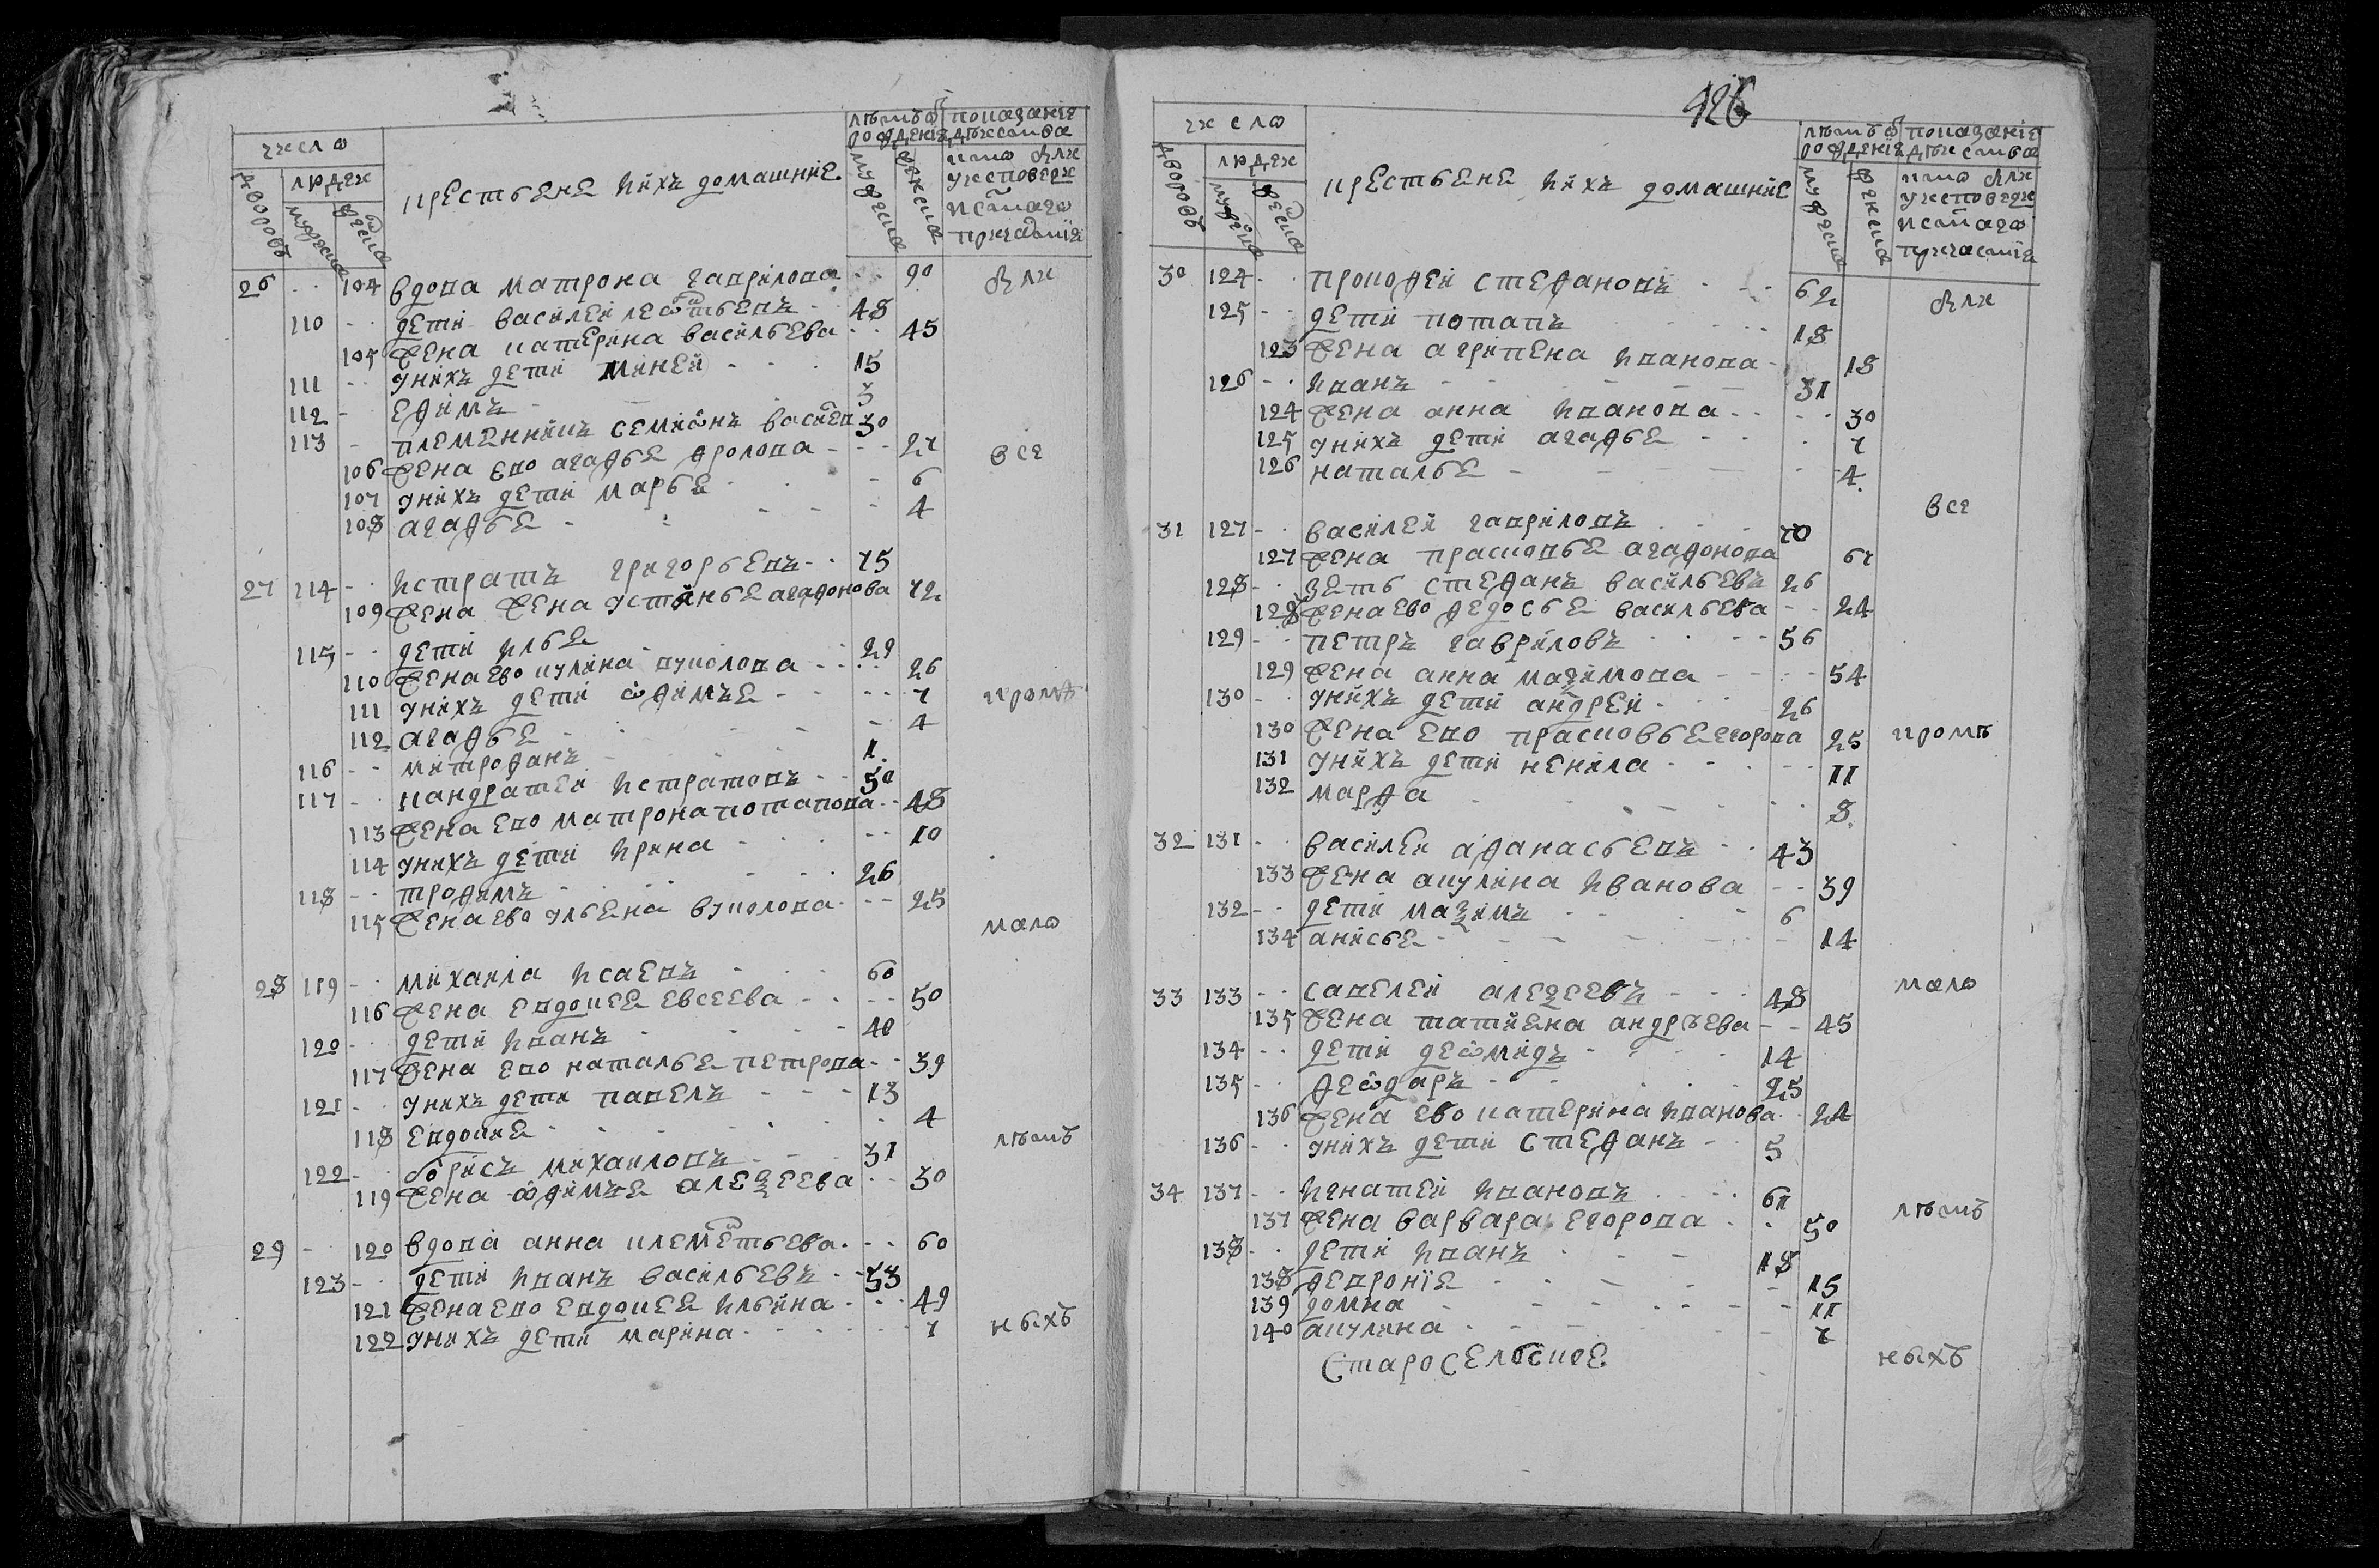 число
дворовъ
людеи
мужеска
женска
крестьяне ихъ домашние
летъ от рожденія
мужеска
женска
показаніе действа
кто были
у исповеди
и святаго
причастія
26 104 вдова матрона гаврилова 90 были
110 дети василеи леонтьевъ 48
105 жена катерина васильева 45
111 у нихъ дети миней 15
112 ефимъ 3
113 племенникъ семионъ василев 30
106 жена ево агафье фролова 27 все
107 у нихъ дети марье 6
108 агафье 4
27 114 истратъ григорьевъ 75
109 жена жена устинье агафонова 72
115 дети илье 29
110 жена ево кулина вуколова 26
111 у нихъ дети офимье 7 кроме
112 агафье 4
116 митрофанъ 1
117 кандратеи истратовъ 50
113 жена ево матрона потапова 48
114 у нихъ дети ирина 10
118 трофимъ 26
115 жена ево ульена вуколова 25
мало
28 119 михаила исаевъ 60
116 жена евдокее евсеева 50
120 дети иванъ 40
117 жена ево наталье петрова 39
121 у нихъ дети павелъ 13
118 евдокее 4
летъ
122 борисъ михаиловъ 31
119 жена офимье алеѯеева 30
29 120 вдова анна клеметьева 60
123 дети иванъ васильевъ 53
121 жена ево евдокее ильина 49
122 у нихъ дети марина 7 ныхъ
426
число
дворовъ
людеи
мужеска
женска
крестьяне ихъ домашние
летъ от рожденія
мужеска
женска
показаніе действа
кто были
у исповеди
и святаго
причастія
30 124 прокофеи стефановъ 62 были
125 дети потапъ 18
123 жена агрипена иванова 18
126 иванъ 31
124 жена анна иванова 30
125 у нихъ дети агафье 7
126 наталье 4
все
31 127 василеи гавриловъ 70
127 жена прасковье агафонова 67
128 зеть стефанъ васильевъ 26
128 жена ево федосье васильева 24
129 петръ гавриловъ 56
129 жена анна маѯимова 54
130 у нихъ дети андреи 26
130 жена ево прасковье егорова 25 кроме
131 у нихъ дети ненила 11
132 марфа 8
32 131 василеи афанасьевъ 43
133 жена акулина иванова 39
132 дети маѯимъ 6
134 анисье 14
33 133 савелеи алеѯеевъ 48 мало
135 жена татиена андръева 45
134 дети деомидъ 14
135 феодаръ 25
136 жена ево катерина иванова 24
136 у нихъ дети стефанъ 5
34 137 игнатеи ивановъ 61 летъ
137 жена варвара егорова 50
138 дети иванъ 18
138 февроніе 15
139 домна 11
140 акулина 7
Старосельское ныхъ